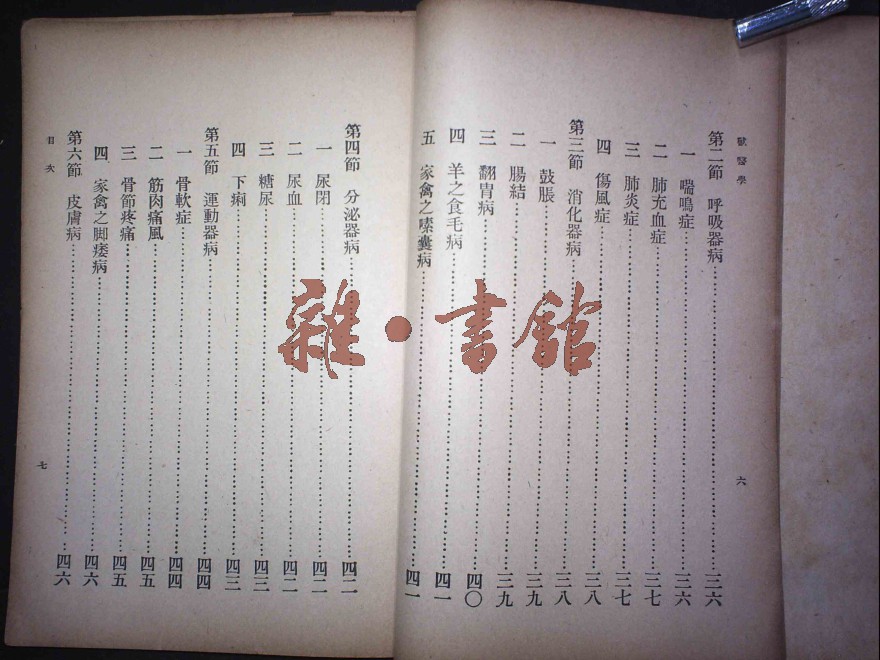 獸醫學
六
第二節 呼吸器病…三六
一 喘鳴症…三六
二 肺充血症…三七
三 肺炎症…三七
四 傷風症…三八
第三節 消化器病…三八
一 鼓脹…三九
二 腸結…三九
三 翻胃病…四〇
四 羊之食毛病…四一
五 家禽之嗉囊病…四一
第四節 分泌器病…四二
一 尿閉…四二
二 尿血…四二
三 糖尿…四三
四 下痢…四三
第五節 運動器病…四四
一 骨軟症…四四
二 筋肉痛風…四五
三 骨節疼痛…四五
四 家禽之脚痿病…四六
第六節 皮膚病…四六
目次
七
雜·書館